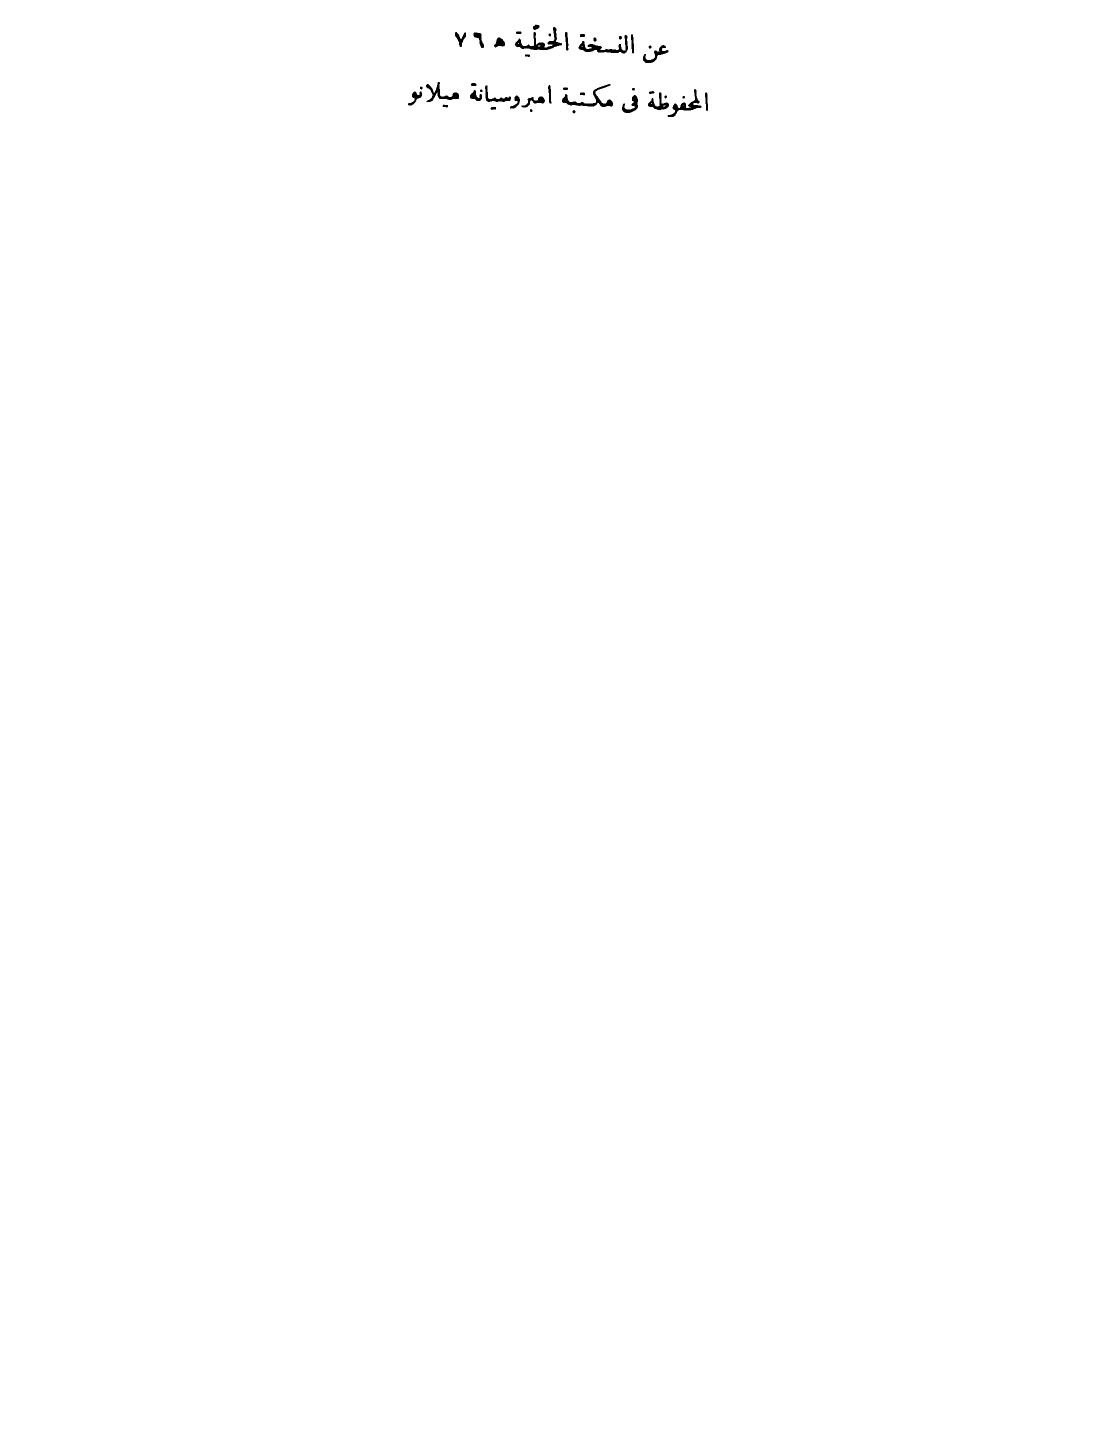 عن النسخة الخطّية ﻫ ٧٦
المحفوظة فى مكتبة امبروسيانة ميلانو